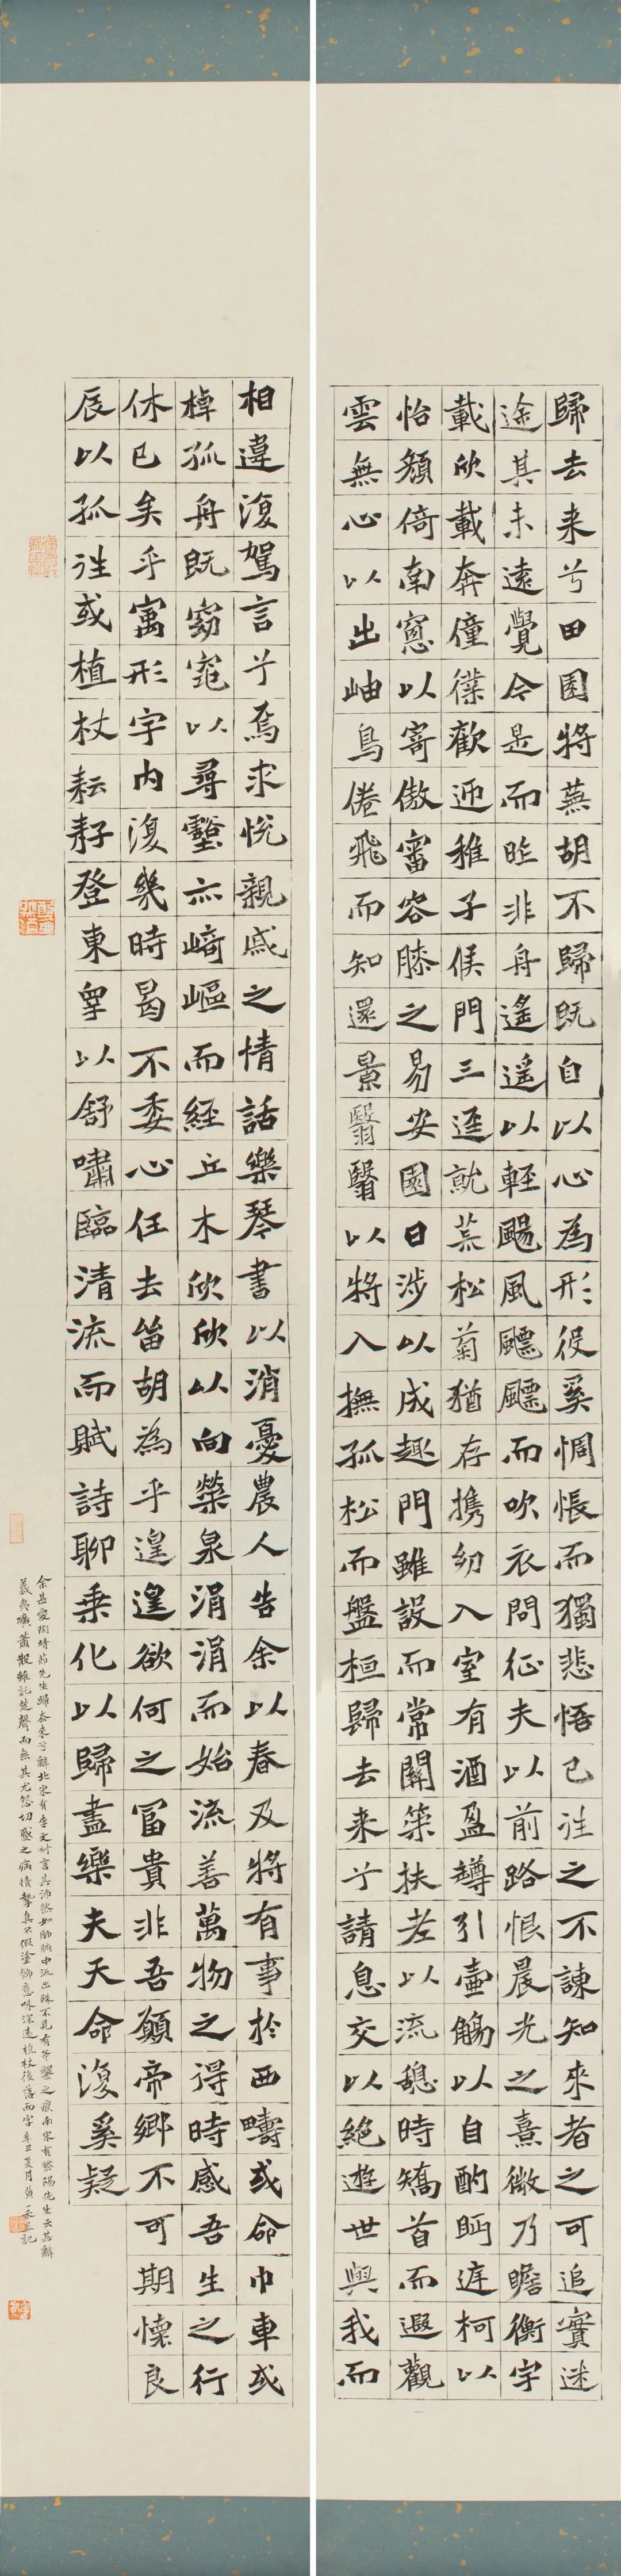 歸去来兮田園將蕪胡不歸既自以心為形役奚惆悵而獨悲悟已往之不諫知來者之可追實迷
途其未遠覺今是而昨非舟遙遙以輕颺風飄飄而吹衣問征夫以前路恨晨光之熹微乃瞻衡宇
載欣載奔僮僕歡迎稚子候門三逕就荒松菊猶存携幼入室有酒盈樽引壺觴以自酌眄庭柯以
怡顏倚南窓以寄傲審容膝之易安園日涉以成趣門雖設而常關策扶老以流憩時矯首而遐觀
雲無心以出岫鳥倦飛而知還景翳翳以將入撫孤松而盤桓歸去来兮請息交以絕遊世與我而
相違復駕言兮焉求悦親戚之情話樂琴書以消憂農人告余以春及將有事於西疇或命巾車或
棹孤舟既窈窕以尋壑亦崎嶇而經丘木欣欣以向榮泉涓涓而始流善萬物之得時感吾生之行
休已矣乎寓形宇內復幾時曷不委心任去留胡為乎遑遑欲何之冨貴非吾願帝鄉不可期懷良
辰以孤往或植杖耘耔登東皋以舒嘯臨清流而賦詩聊乗化以歸盡樂夫天命復奚疑
余甚愛陶靖節先生歸去来兮辭北宋有李文叔言其沛然如肺腑中流出殊不見有斧鑿之痕南宋有紫陽先生云其辭
義夷曠蕭散雖託楚聲而無其尤怨切蹙之病情摯真不假塗飾意味深遠植杖後落而字辛丑夏月黃記